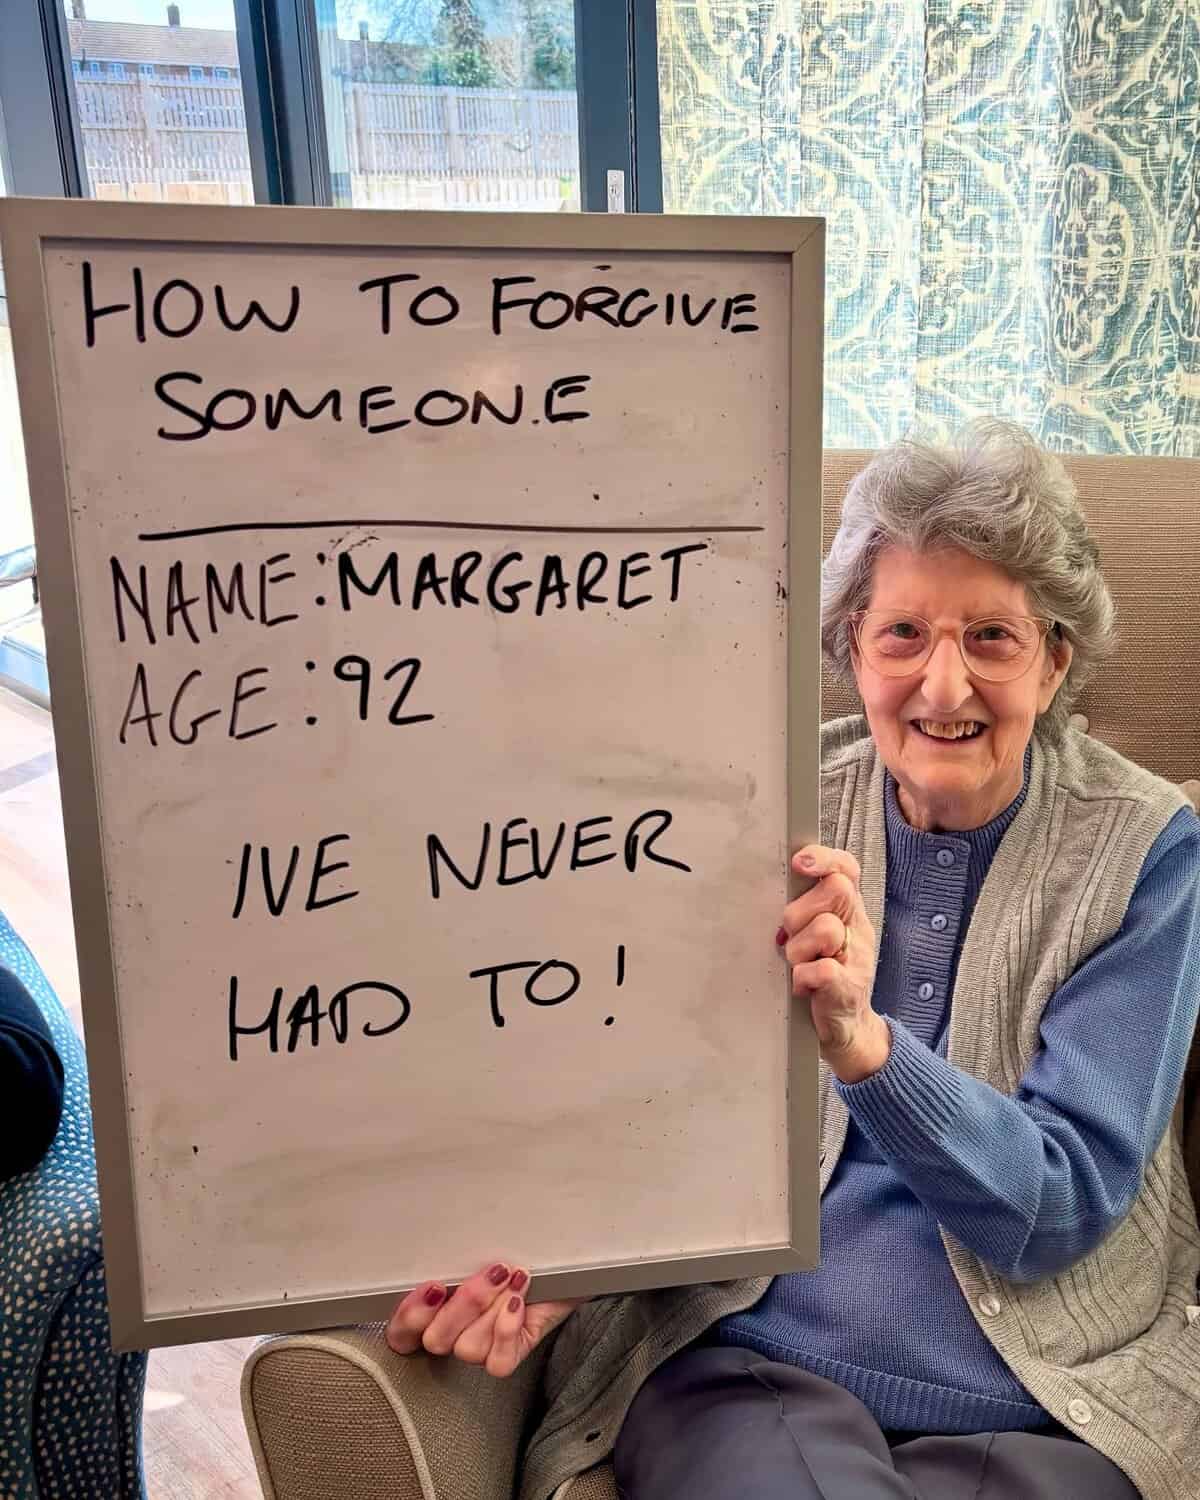 HOW TO FORGIVE
SOMEONE
NAME: MARGARET
AGE: 92
IVE NEVER
HAD TO!